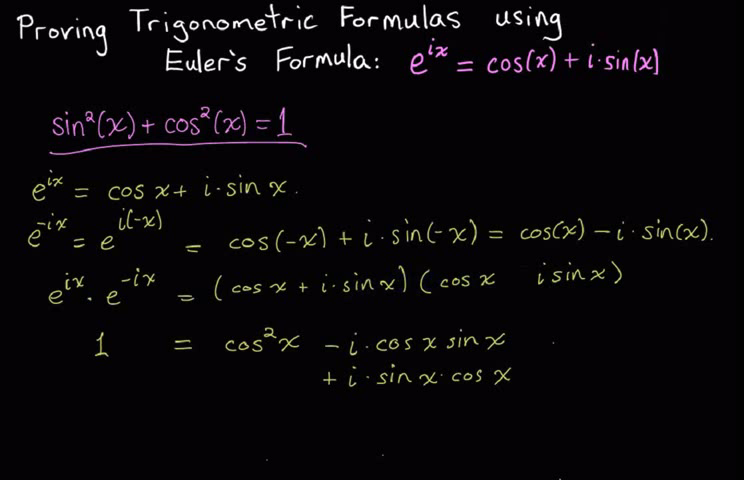 Proving Trigonometric Formulas using
Euler's Formula: e^{ix} = cos(x) + i·sin(x)
sin²(x) + cos²(x) = 1
e^{ix} = cos x + i·sin x.
e^{-ix} = e^{i(-x)} = cos(-x) + i·sin(-x) = cos(x) - i·sin(x).
e^{ix} · e^{-ix} = (cos x + i·sin x) (cos x i sin x)
1 = cos²x - i·cos x sin x
+ i·sin x·cos x